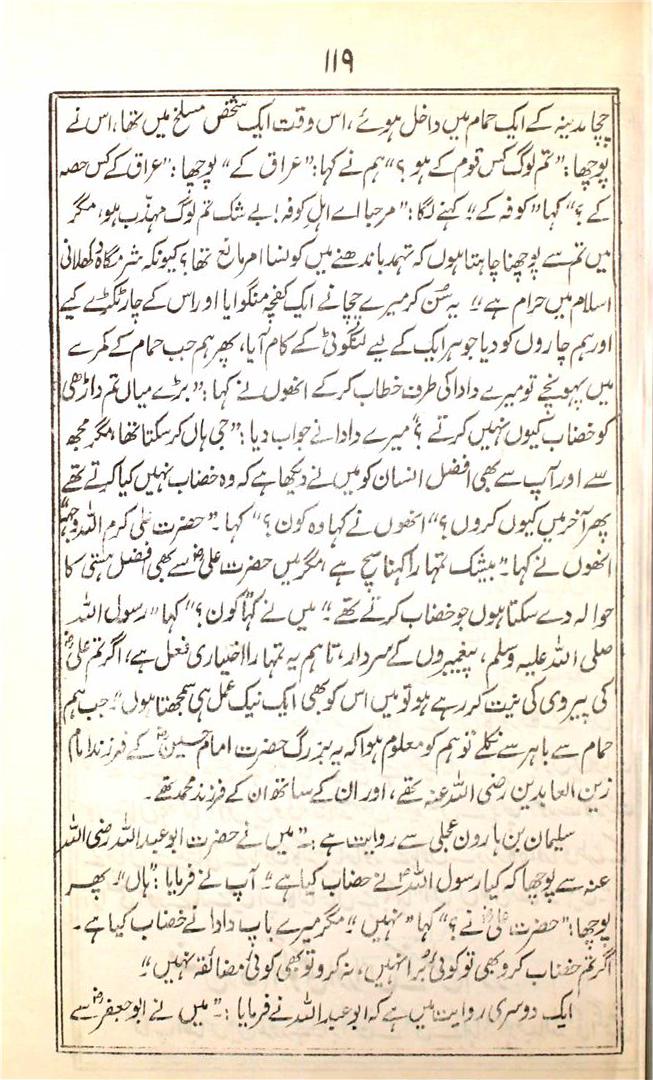 ۱۱۹
چچا مدینہ کے ایک حمام میں داخل ہوئے، اس وقت ایک شخص مسلخ میں تھا، اس نے
پوچھا: ”تم لوگ کس قوم کے ہو؟“ ہم نے کہا: ”عراق کے“ پوچھا: ”عراق کے کس حصہ
کے؟“ کہا ”کوفہ کے“ کہنے لگا: ”مرحبا اے اہلِ کوفہ! بے شک تم لوگ مہذب ہو، مگر
میں تم سے پوچھنا چاہتا ہوں کہ تہمد باندھنے میں کونسا امر مانع تھا؟ کیونکہ شرمگاہ دکھلانی
اسلام میں حرام ہے“ یہ سُن کر میرے چچا نے ایک کفچہ منگوایا اور اس کے چار ٹکڑے کیے
اور ہم چاروں کو دیا جو ہر ایک کے لیے لنگوٹی کے کام آیا، پھر ہم جب حمام کے کمرے
میں پہونچے تو میرے دادا کی طرف خطاب کر کے انھوں نے کہا: ”بڑے میاں تم داڑھی
کو خضاب کیوں نہیں کرتے؟“ میرے دادا نے جواب دیا: ”جی ہاں کر سکتا تھا، مگر مجھ
سے اور آپ سے بھی افضل انسان کو میں نے دیکھا ہے کہ وہ خضاب نہیں کیا کرتے تھے
پھر آخر میں کیوں کروں؟“ انھوں نے کہا وہ کون؟“ کہا۔ ”حضرت علی کرم اللہ وجہہٗ“
انھوں نے کہا۔ ”بیشک تمہارا کہنا سچ ہے مگر میں حضرت علیؓ سے بھی افضل ہستی کا
حوالہ دے سکتا ہوں جو خضاب کرتے تھے۔“ میں نے کہا ”کون؟“ کہا ”رسول اللہ
صلی اللہ علیہ وسلم، پیغمبروں کے سردار، تاہم یہ تمہارا اختیاری فعل ہے، اگر تم علیؓ
کی پیروی کی نیت کر رہے ہو تو میں اس کو بھی ایک نیک عمل ہی سمجھتا ہوں“۔ جب ہم
حمام سے باہر سے نکلے تو ہم کو معلوم ہوا کہ یہ بزرگ حضرت امام حسینؓ کے فرزند امام
زین العابدین رضی اللہ عنہ تھے، اور ان کے ساتھ ان کے فرزند محمد تھے۔
سلیمان بن ہارون عجلی سے روایت ہے:۔ ”میں نے حضرت ابو عبد اللہ رضی اللہ
عنہ سے پوچھا کہ کیا رسول اللہؐ نے خضاب کیا ہے“ آپ نے فرمایا: ”ہاں“۔ پھر
پوچھا: ”حضرت علیؓ نے؟“ کہا ”نہیں“ مگر میرے باپ دادا نے خضاب کیا ہے۔
اگر تم خضاب کرو بھی تو کوئی بُرا نہیں، نہ کرو تو بھی کوئی مضائقہ نہیں“
ایک دوسری روایت میں ہے کہ ابو عبد اللہ نے فرمایا:۔ ”میں نے ابو جعفرؓ سے